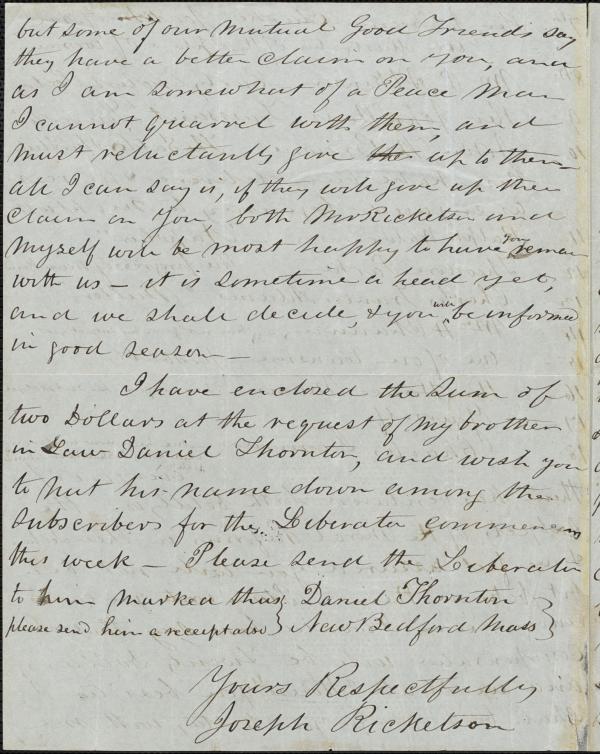 but some of our mutual Good Friends say
they have a better claim on You, and
as I am somewhat of a Peace Man
I cannot quarrel with them, and
must reluctantly give up to them —
all I can say is, if they will give up their
claim on You both Mr Ricketson and
Myself will be most happy to have you remain
with us — it is sometime a head yet,
and we shall decide, & you will be informed
in good season —
I have enclosed the sum of
two Dollars at the request of my brother
in Law Daniel Thornton, and wish you
to put his name down among the
subscribers for the Liberator commencing
this week — Please send the Liberator
to him marked thus } Daniel Thornton
please send him a receipt also } New Bedford Mass }
Yours Respectfully
Joseph Ricketson